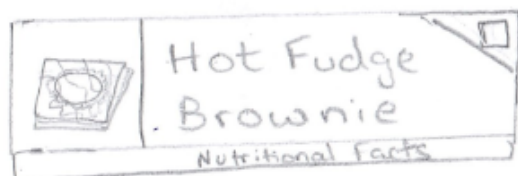 Hot Fudge
Brownie
Nutritional Facts